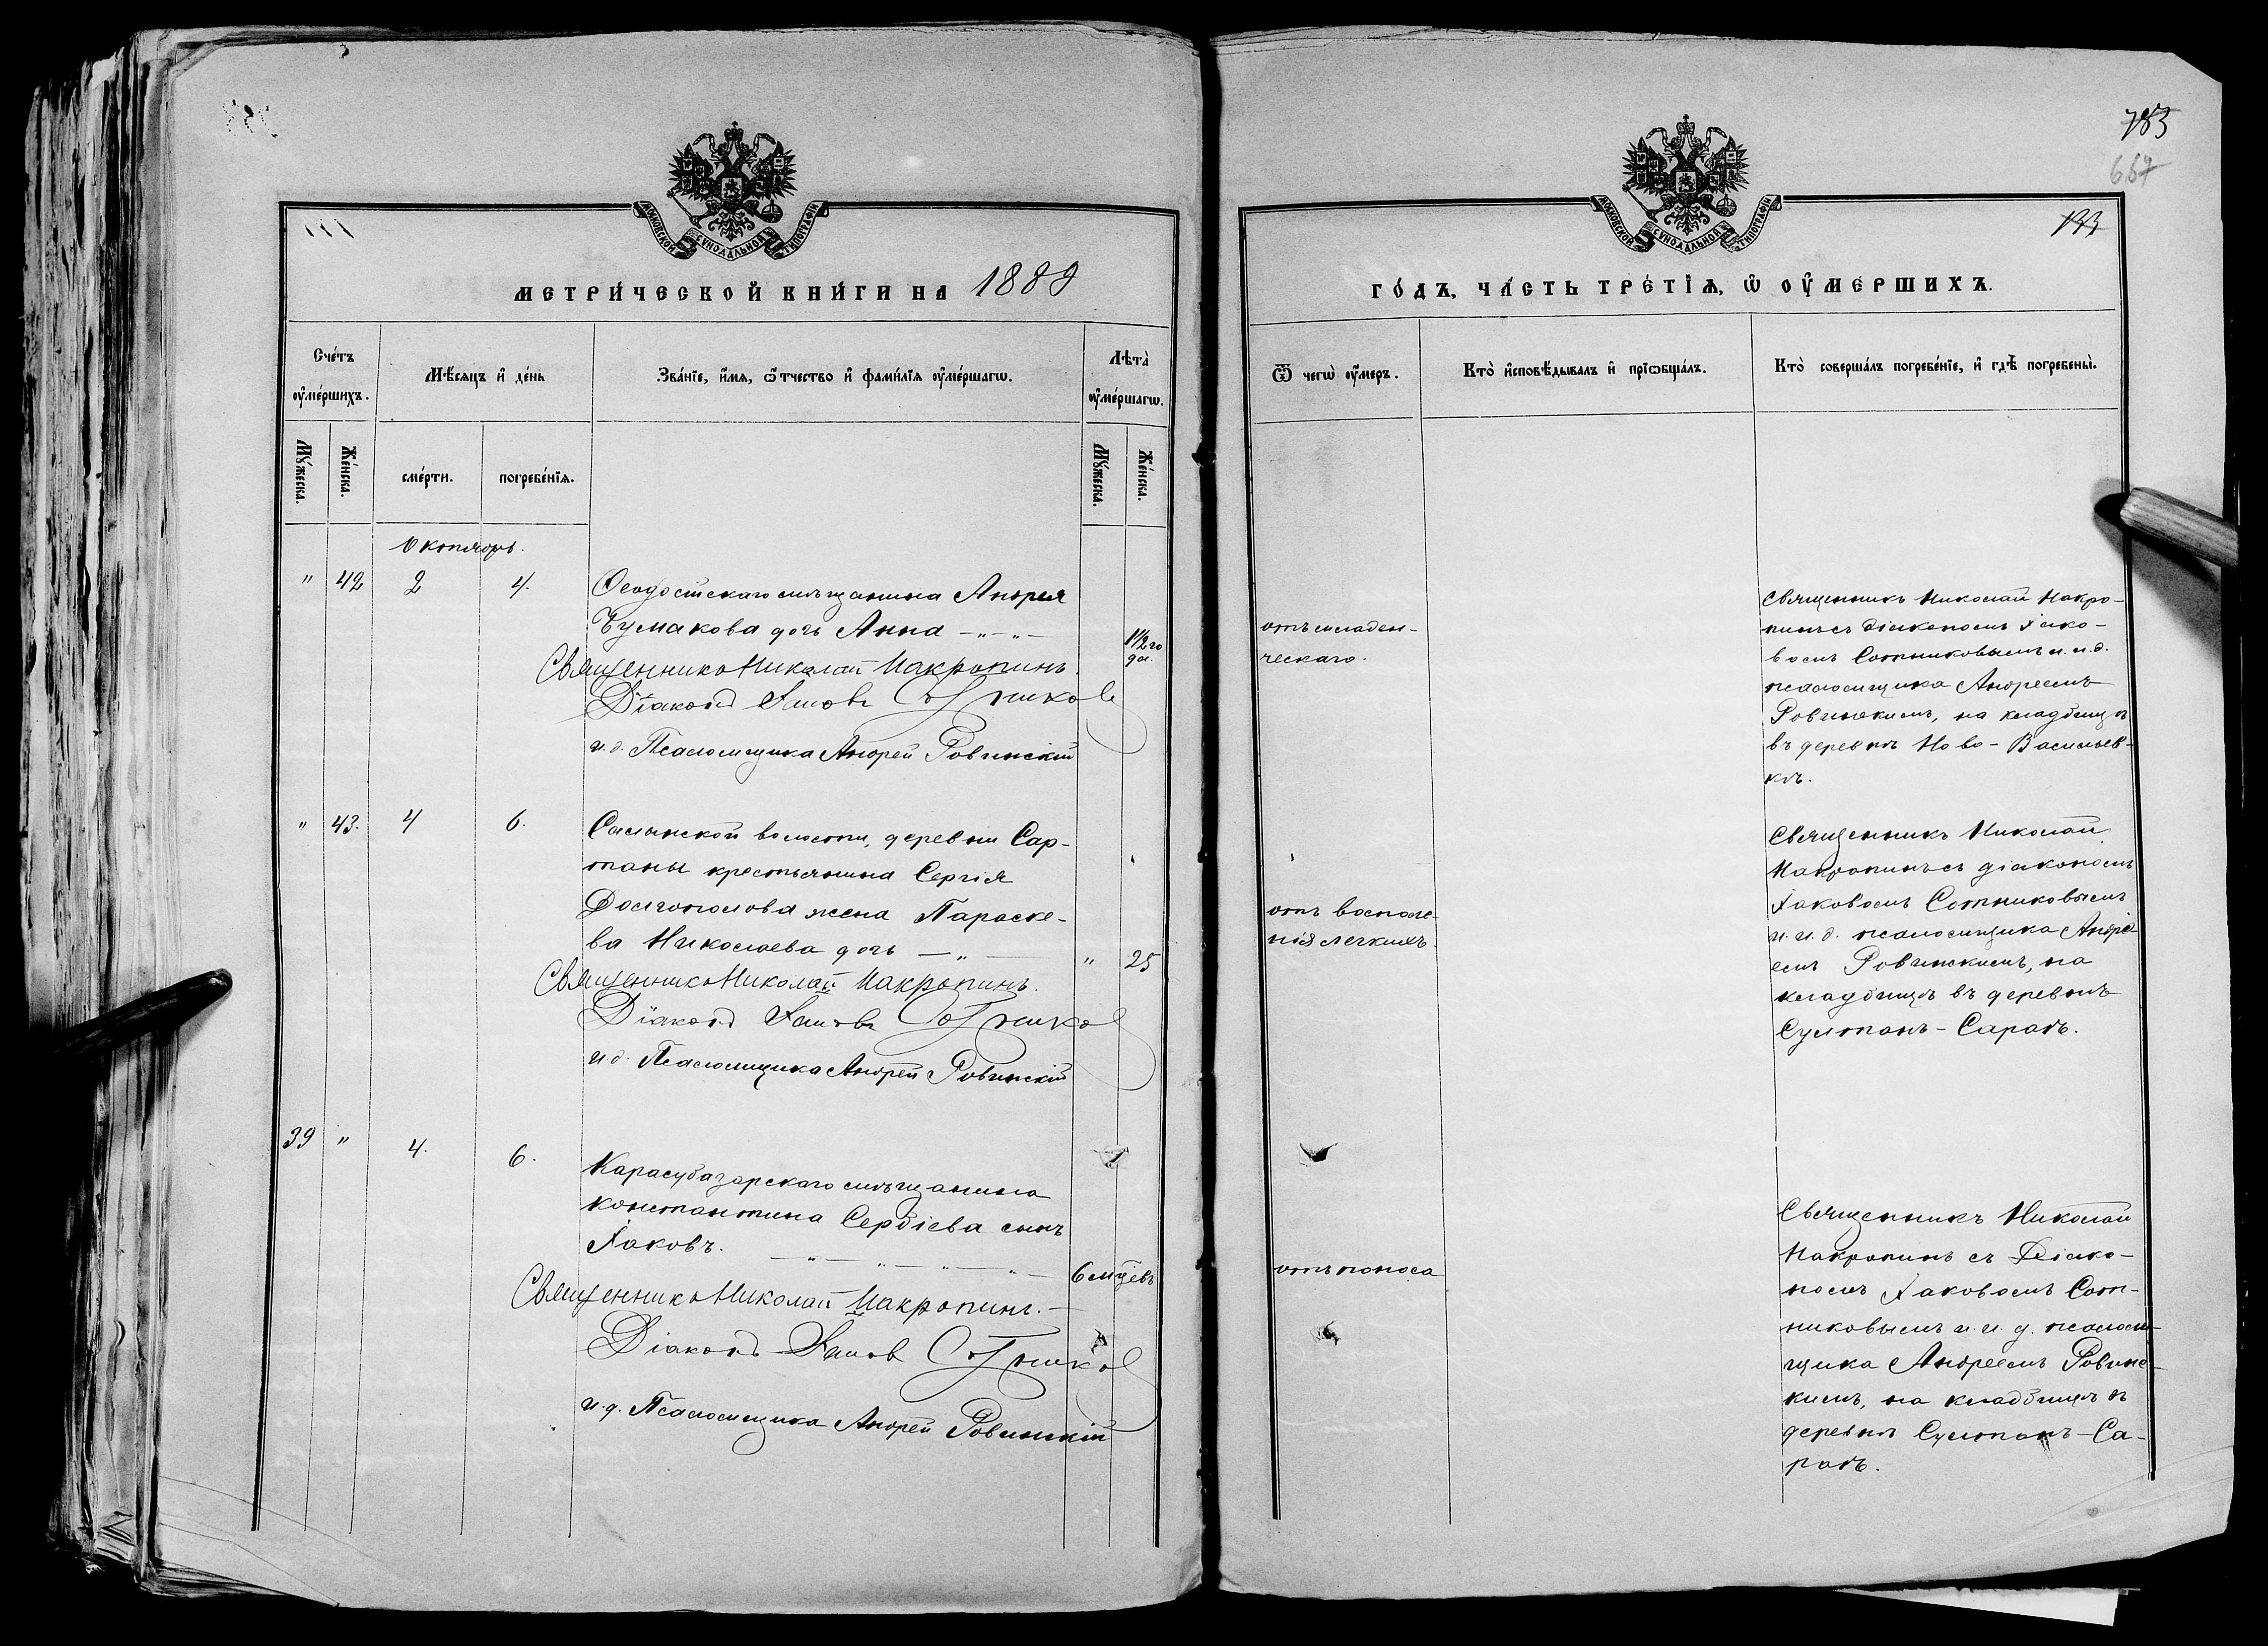 783
667
133
МОСКОВСКОЙ СУНОДАЛЬНОЙ ТИПОГРАФІИ
МОСКОВСКОЙ СУНОДАЛЬНОЙ ТИПОГРАФІИ
МЕТРИ́ЧЕСКОЙ КНИ́ГИ НА 1889
ГО́ДЪ, ЧА́СТЬ ТРЕ́ТІѦ, Ѽ ОУ҆МЕ́РШИХЪ.
Сче́тъ оу҆ме́ршихъ.
Мѣ́сяцъ и҆ де́нь
Зва́нїе, и҆́мя, ѻ҆́тчество и҆ фами́лїя оу҆ме́ршагѡ.
Лѣта̀ оу҆ме́ршагѡ.
Ѿ чегѡ̀ оу҆́меръ.
Кто̀ и҆сповѣ́дывалъ и҆ прїѡбща́лъ.
Кто̀ соверша́лъ погребе́нїе, и҆ гдѣ̀ погребены̀.
Му́жеска.
Же́нска.
сме́рти.
погребе́нїя.
Му́жеска.
Же́нска.
Октябрь.
" 42 2 4. Ѳеодосійскаго мѣщанина Андрея
Чумакова дочь Анна — " — " —
1 1/2 го
Священникъ Николай Макропинъ.
Діаконъ Іаковъ Сотников
и. д. Псаломщика Андрей Ровинскій
отъ младен-
ческаго.
Священникъ Николай Макро-
пинъ съ діакономъ Іако-
вомъ Сотниковымъ и. и. д.
псаломщика Андреемъ
Ровинскимъ, на кладбищѣ
въ деревнѣ Ново-Васильев-
кѣ.
" 43. 4 6. Салынской волости, деревни Сар-
таны крестьянина Сергія
Долгополова жена Параске-
ва Николаева дочь — " — " 25
Священникъ Николай Макропинъ.
Діаконъ Іаковъ Сотников
и. д. Псаломщика Андрей Ровинскій
отъ воспале-
нія легкихъ.
Священникъ Николай
Макропинъ съ діакономъ
Іаковомъ Сотниковымъ
и. и. д. псаломщика Андре-
емъ Ровинскимъ, на
кладбищѣ въ деревнѣ
Султанъ-Сараѣ.
39 " 4. 6. Карасубазарскаго мѣщанина
Константина Сербіева сынъ
Іаковъ. — " — " — " — " — 6 мцевъ
Священникъ Николай Макропинъ. —
Діаконъ Іаков Сотников
и. д. Псаломщика Андрей Ровинскій
отъ поноса
Священникъ Николай
Макропинъ съ Діако-
номъ Іаковомъ Сот-
никовымъ и. и. д. псалом-
щика Андреемъ Ровинс-
кимъ, на кладбищѣ въ
деревнѣ Султанъ-Са-
раѣ.